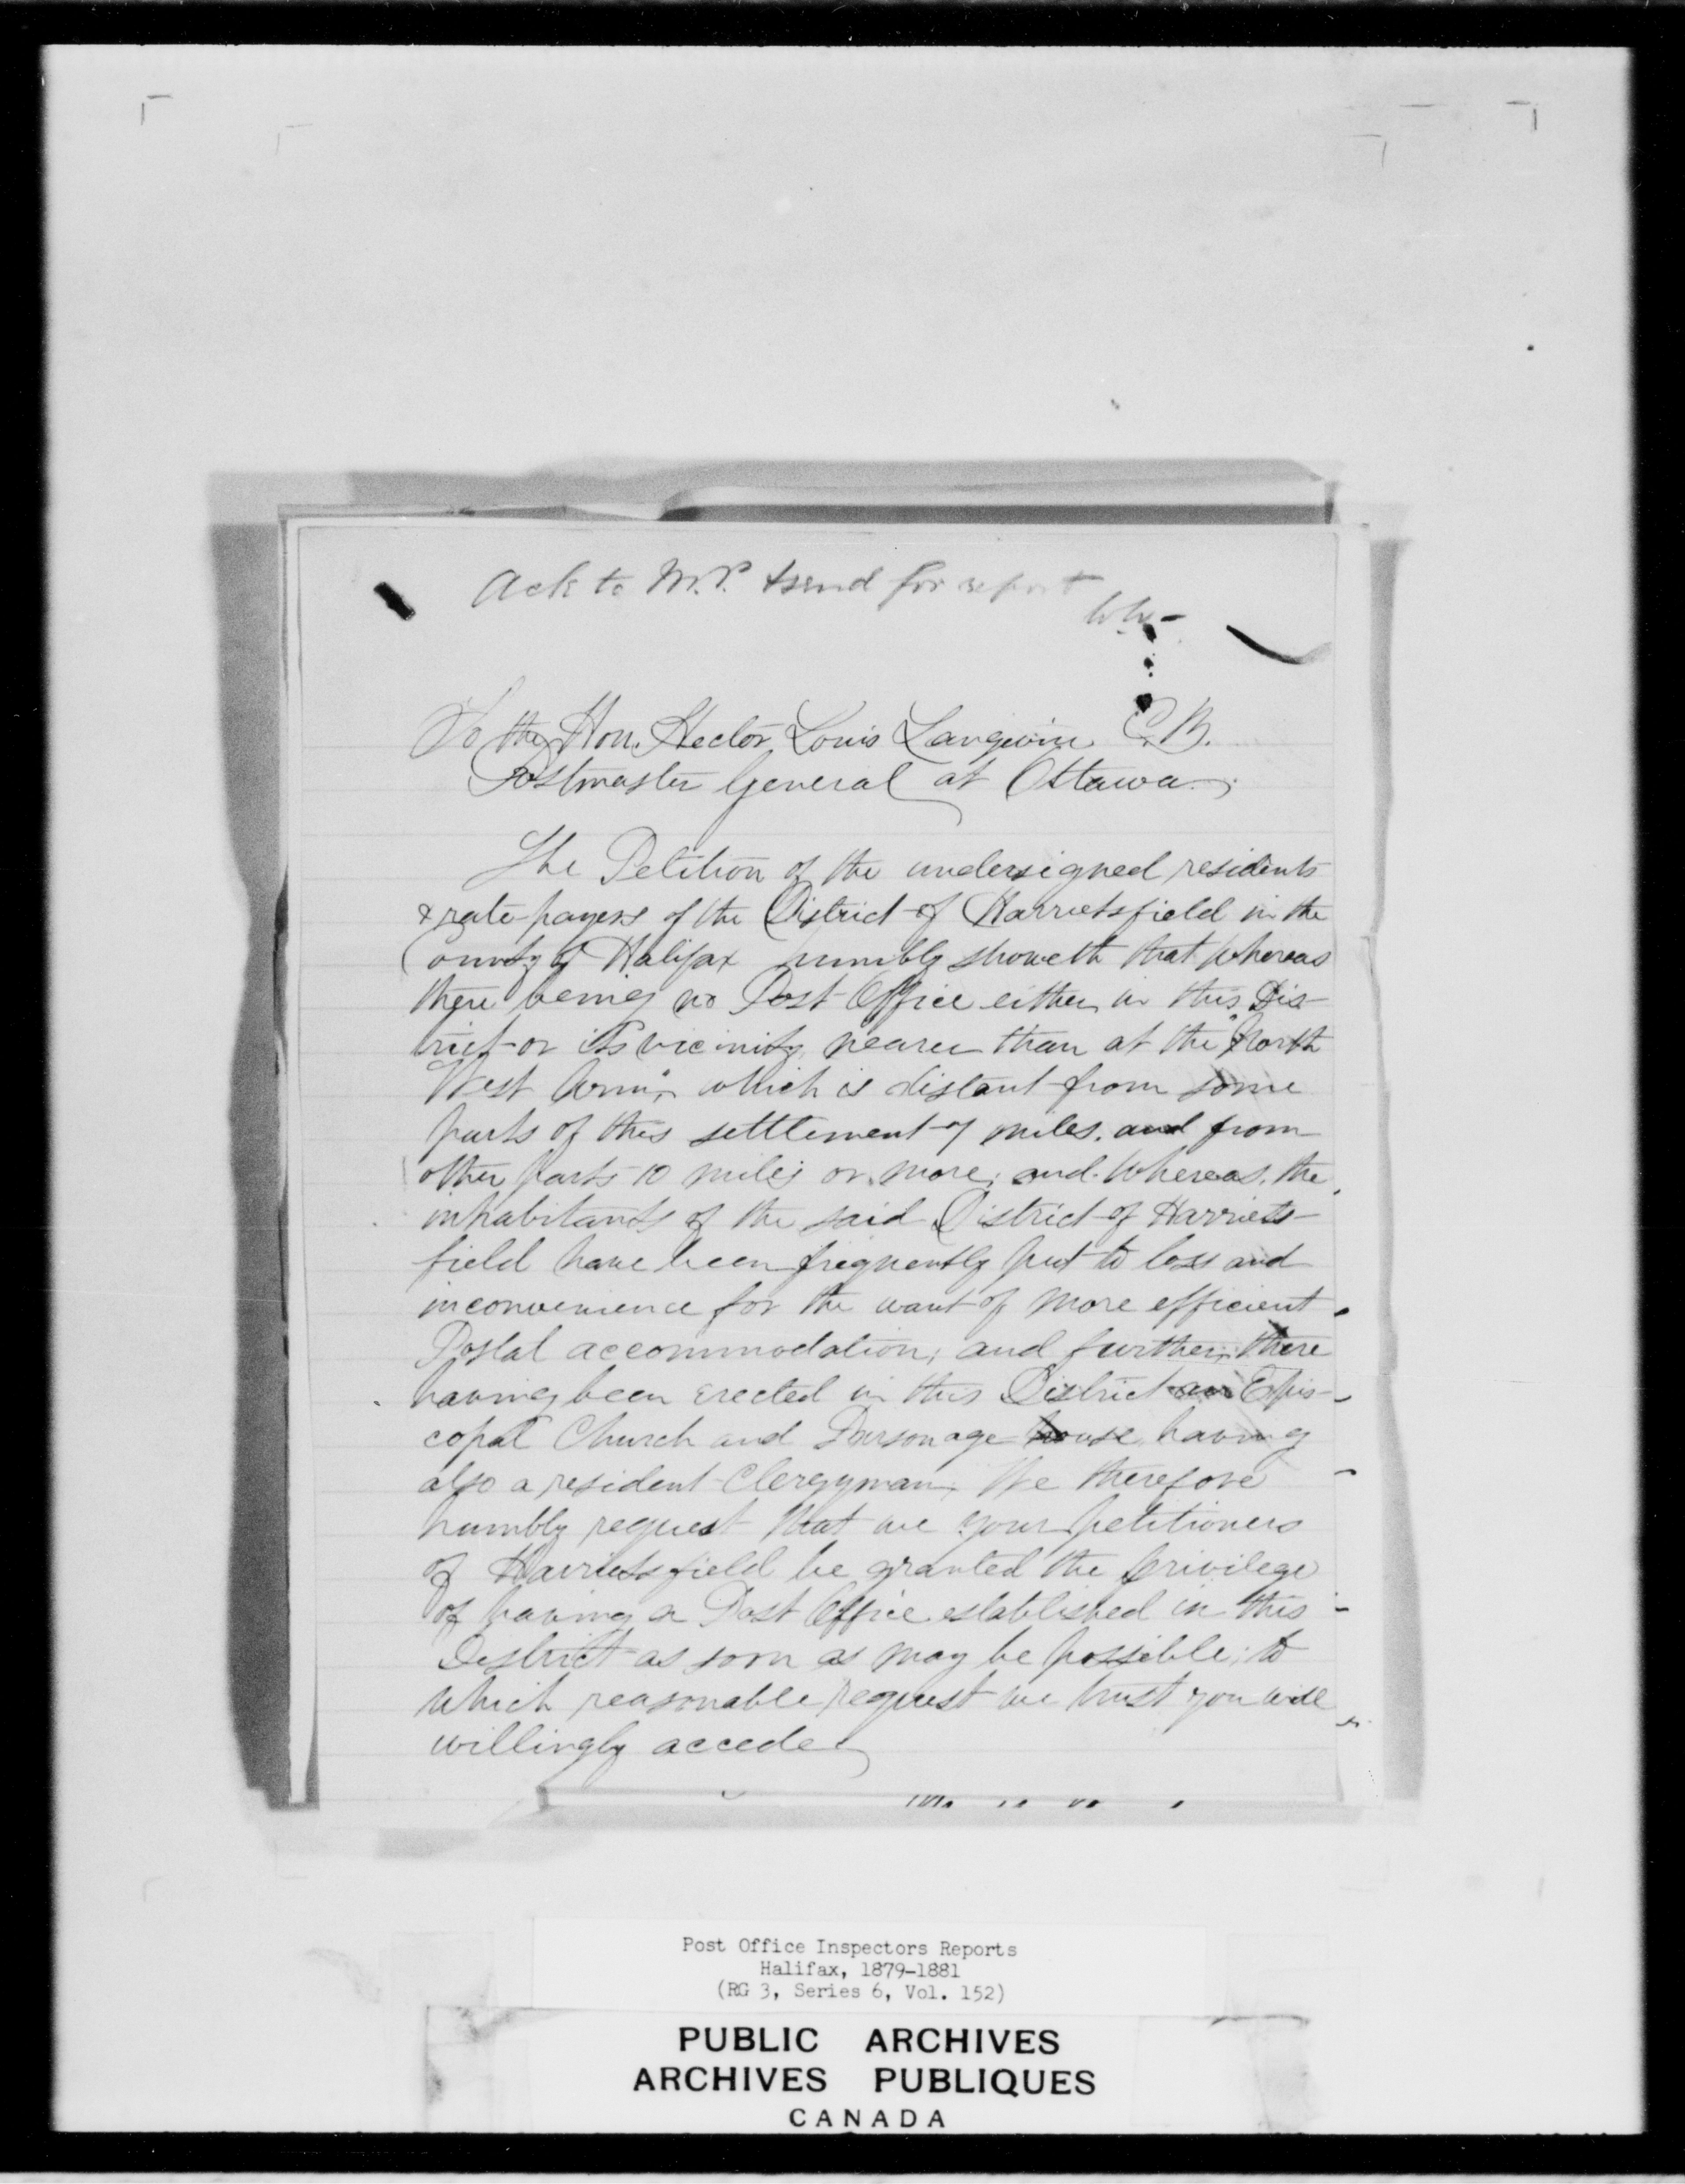 Ack to M.P. & send for report
W.W-
To the Hon. Hector Louis Langevin C.B.
Postmaster General at Ottawa;
The Petition of the undersigned residents
& rate-payers of the District of Harrietsfield in the
County of Halifax humbly showeth that whereas
there being no Post Office either in this Dis-
trict or its vicinity nearer than at the "North
West Arm", which is distant from some
parts of this settlement 7 miles. and from
other parts 10 miles or more; and whereas, the
inhabitants of the said District of Harriets-
field have been frequently put to loss and
inconvenience for the want of more efficient
Postal accommodation; and further, there
having been erected in this District an Epis-
copal Church and Parsonage house, having
also a resident Clergyman, We therefore
humbly request that we your petitioners
of Harrietsfield be granted the privilege
of having a Post Office established in this
District as soon as may be possible; to
which reasonable request we trust you will
willingly accede
Post Office Inspectors Reports
Halifax, 1879-1881
(RG 3, Series 6, Vol. 152)
PUBLIC ARCHIVES
ARCHIVES PUBLIQUES
CANADA